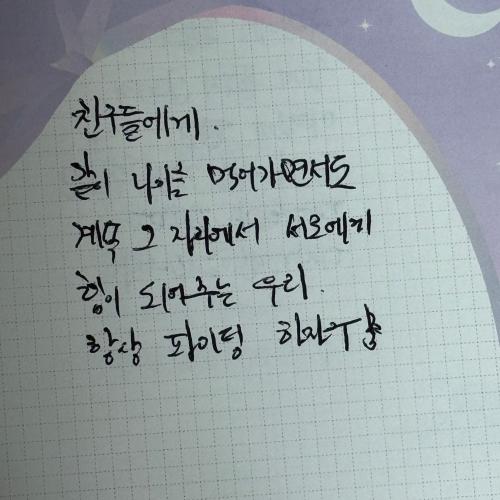 친구들에게.
같이 나이를 먹어가면서도
계속 그 자리에서 서로에게
힘이 되어주는 우리.
항상 파이팅 하자구